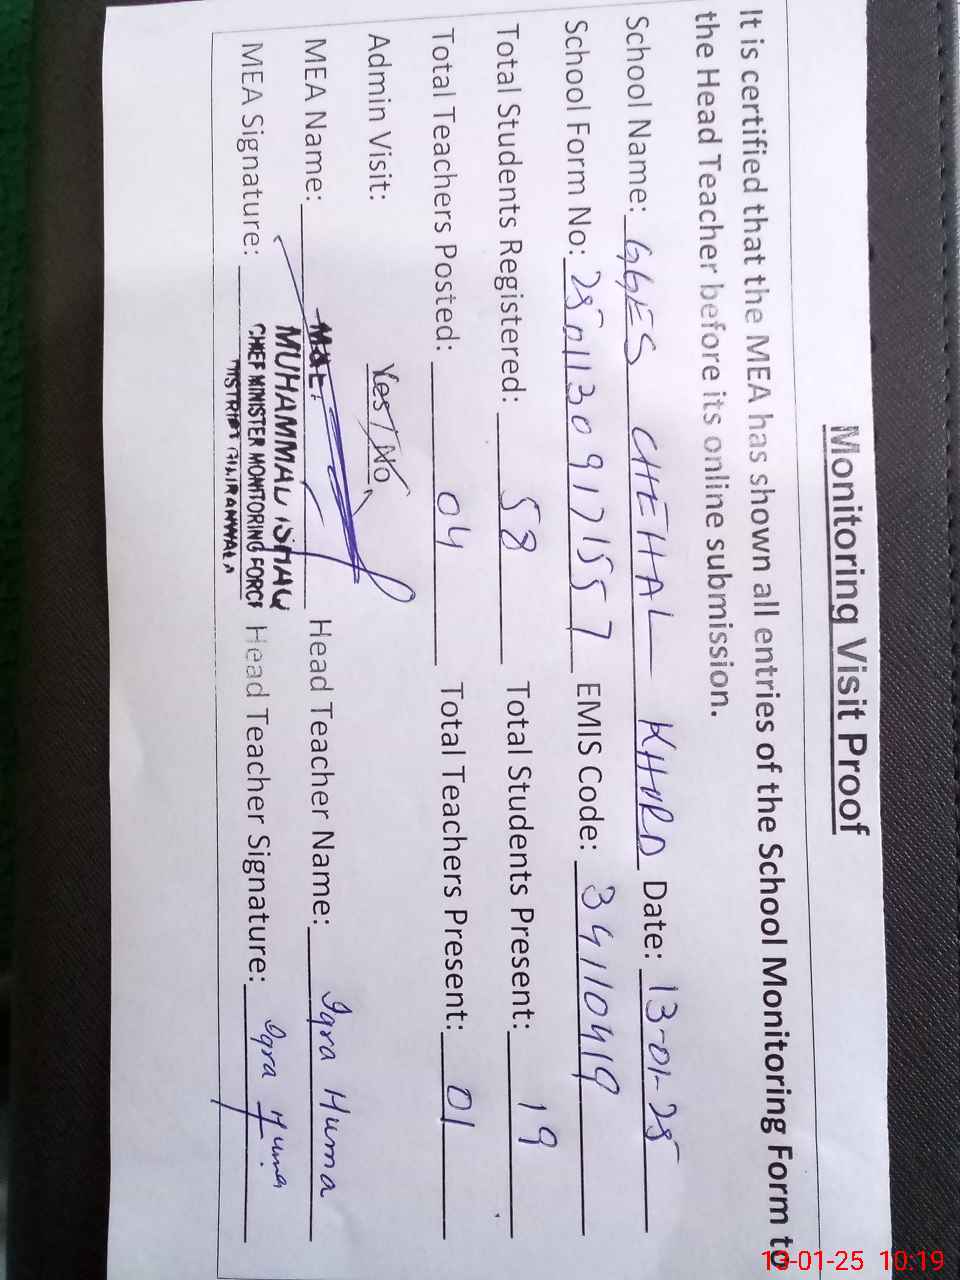 Monitoring Visit Proof
It is certified that the MEA has shown all entries of the School Monitoring Form to
the Head Teacher before its online submission.
School Name: GGES CHEHAL KHURD Date: 13-01-25
School Form No: 2501130917157 EMIS Code: 34110419
Total Students Registered: 58 Total Students Present: 19
Total Teachers Posted: 04 Total Teachers Present: 01
Admin Visit: Yes / No
MEA Name: Head Teacher Name: Iqra Huma
MUHAMMAD ISHAQ
MEA Signature: CHIEF MINISTER MONITORING FORCE Head Teacher Signature: Iqra Huma
DISTRICT GUJRANWALA
13-01-25 10:19